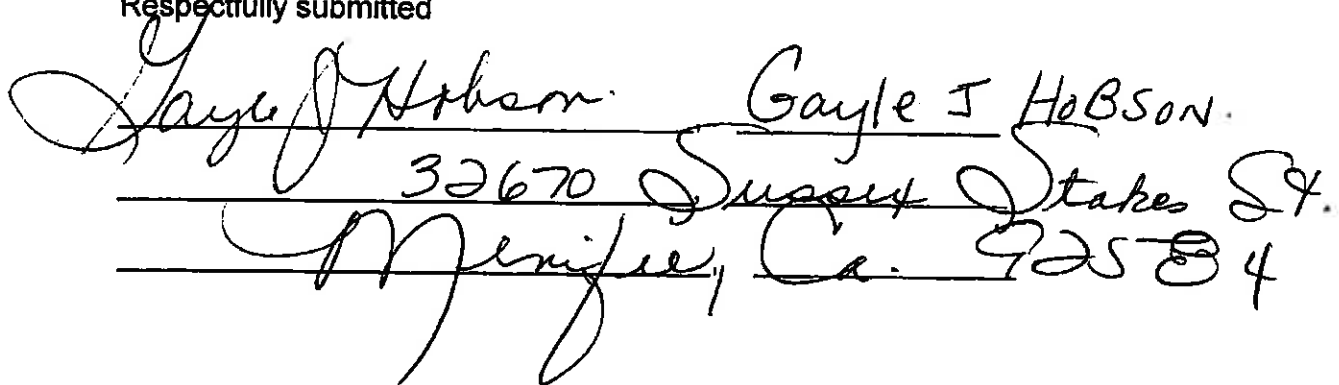 Respectfully submitted
Gayle J Hobson. Gayle J HOBSON.
32670 Sussex Stakes St.
Menifee, Ca. 92584